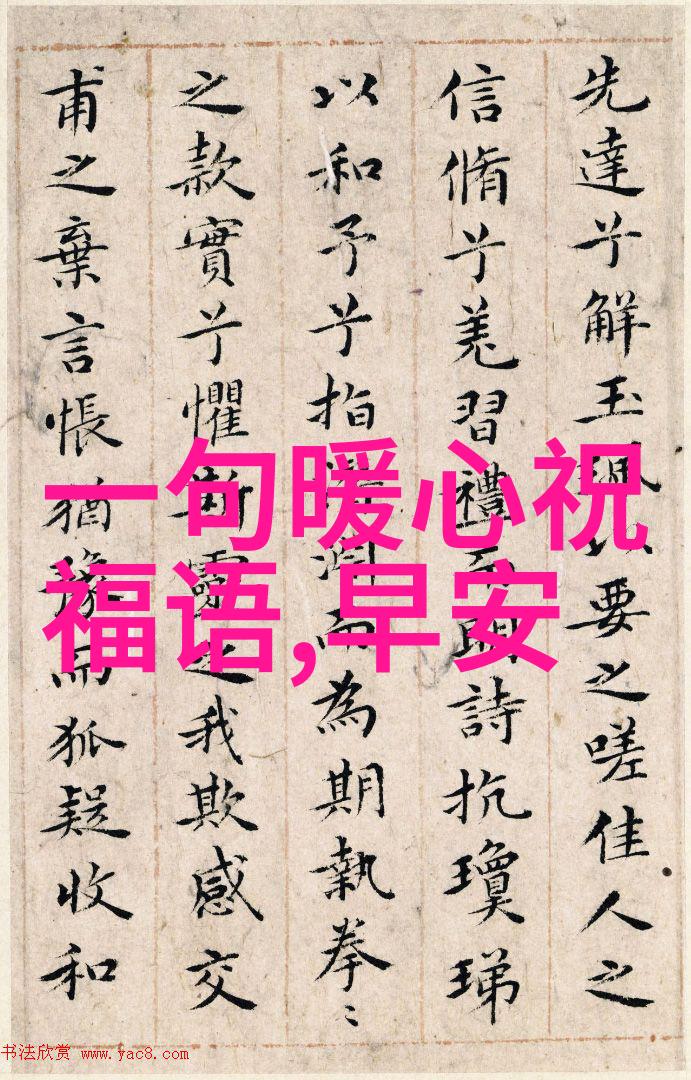 先達兮解玉珮以要之嗟佳人之
信脩兮羌習禮而明詩抗瓊珶
以和予兮指潛淵而為期執拳〻
之款實兮懼斯靈之我欺感交
甫之棄言悵猶豫而狐疑收和
一句暖心祝
福语,早安
书法欣赏 www.yac8.com